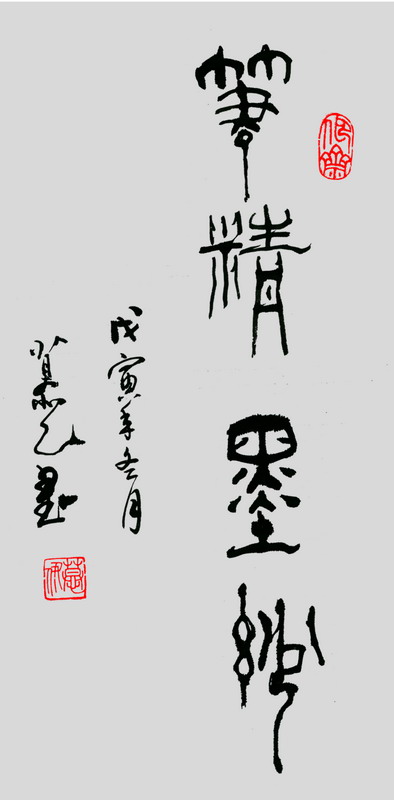 筆精墨妙
戊寅年冬月
書